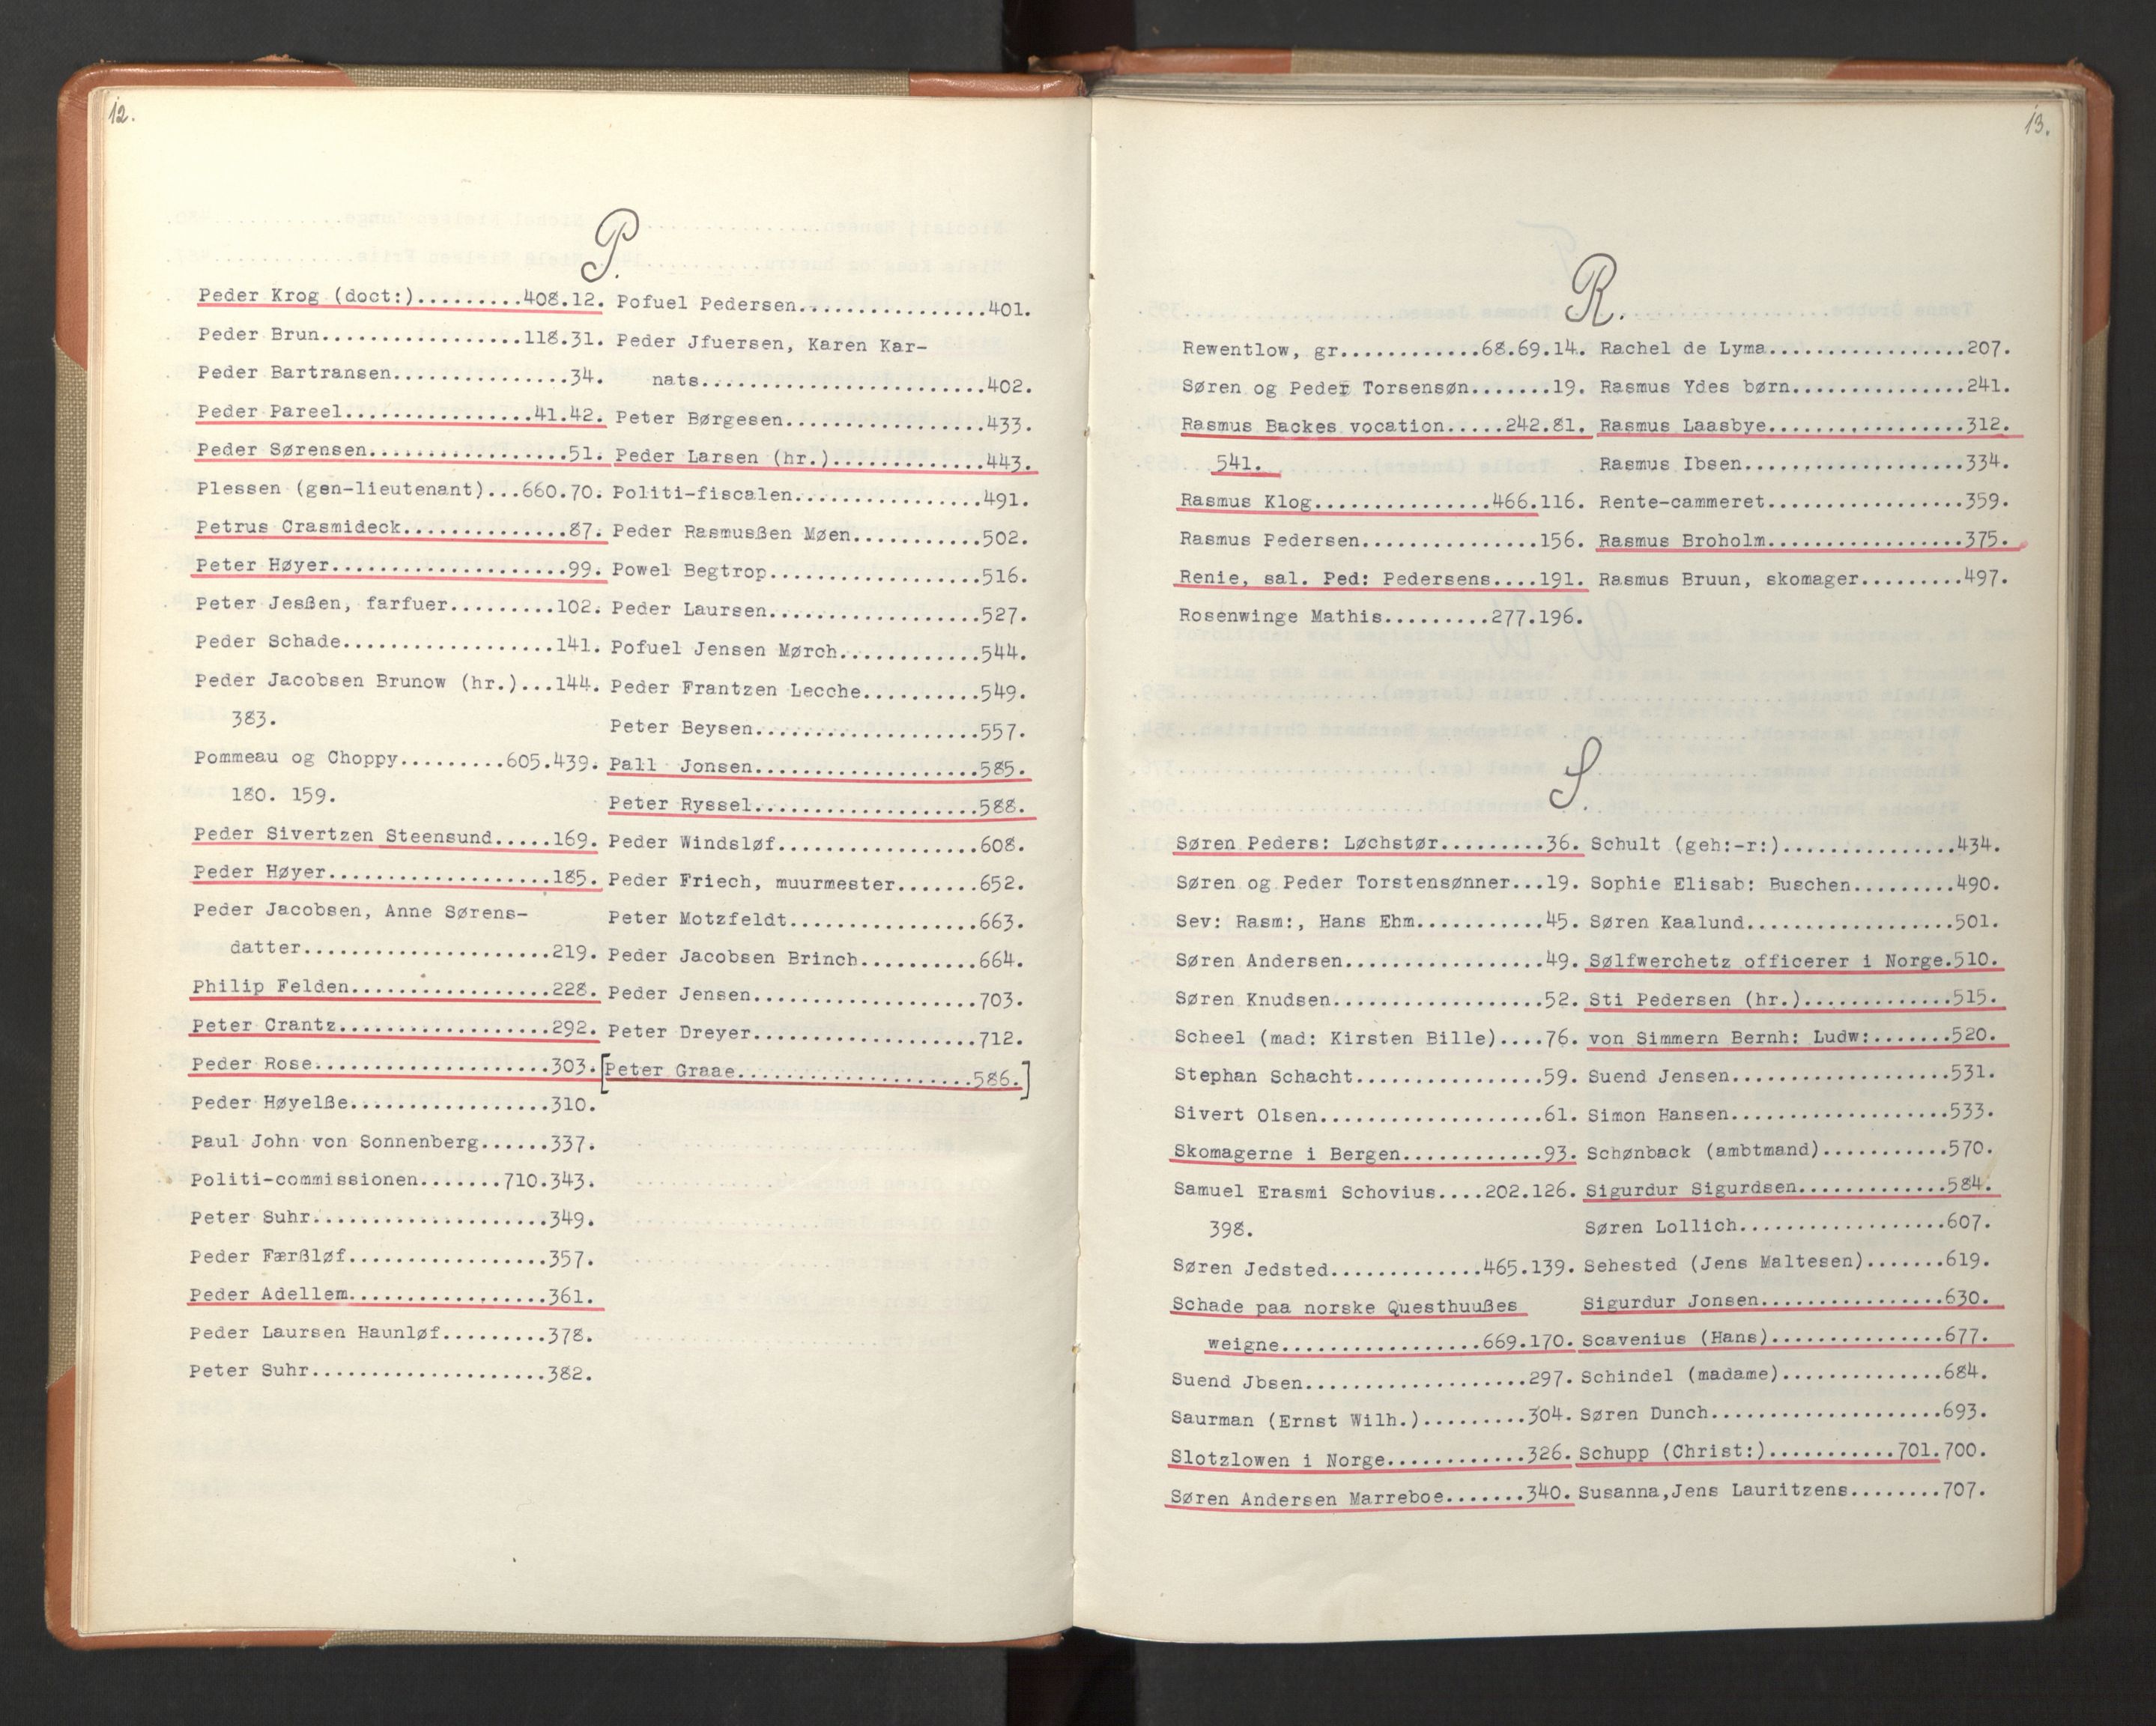 12.
P.
Peder Krog (doct:).........408.12.
Peder Brun.................118.31.
Peder Bartransen...............34.
Peder Pareel................41.42.
Peder Sørensen.................51.
Plessen (gen-lieutenant)...660.70.
Petrus Crasmideck..............87.
Peter Høyer....................99.
Peter Jesßen, farfuer.........102.
Peder Schade..................141.
Peder Jacobsen Brunow (hr.)...144.
383.
Pommeau og Choppy.........605.439.
180. 159.
Peder Sivertzen Steensund.....169.
Peder Høyer...................185.
Peder Jacobsen, Anne Sørens-
datter.....................219.
Philip Felden.................228.
Peter Crantz..................292.
Peder Rose....................303.
Peder Høyelße.................310.
Paul John von Sonnenberg......337.
Politi-commissionen.......710.343.
Peter Suhr....................349.
Peder Færßløf.................357.
Peder Adellem.................361.
Peder Laursen Haunløf.........378.
Peter Suhr....................382.
Pofuel Pedersen................401.
Peder Jfuersen, Karen Kar-
nats........................402.
Peter Børgesen.................433.
Peder Larsen (hr.).............443.
Politi-fiscalen................491.
Peder Rasmusßen Møen...........502.
Powel Begtrop..................516.
Peder Laursen..................527.
Pofuel Jensen Mørch............544.
Peder Frantzen Lecche..........549.
Peter Beysen...................557.
Pall Jonsen....................585.
Peter Ryssel...................588.
Peder Windsløf.................608.
Peder Friech, muurmester.......652.
Peter Motzfeldt................663.
Peder Jacobsen Brinch..........664.
Peder Jensen...................703.
Peter Dreyer...................712.
[Peter Graae....................586.]
13.
R.
Rewentlow, gr............68.69.14.
Søren og Peder Torsensøn.......19.
Rasmus Backes vocation.....242.81.
541.
Rasmus Klog...............466.116.
Rasmus Pedersen...............156.
Renie, sal. Ped: Pedersens....191.
Rosenwinge Mathis.........277.196.
Rachel de Lyma.................207.
Rasmus Ydes børn...............241.
Rasmus Laasbye.................312.
Rasmus Ibsen...................334.
Rente-cammeret.................359.
Rasmus Broholm.................375.
Rasmus Bruun, skomager.........497.
S.
Søren Peders: Løchstør.........36.
Søren og Peder Torstensønner...19.
Sev: Rasm:, Hans Ehm...........45.
Søren Andersen.................49.
Søren Knudsen..................52.
Scheel (mad: Kirsten Bille)....76.
Stephan Schacht................59.
Sivert Olsen...................61.
Skomagerne i Bergen............93.
Samuel Erasmi Schovius....202.126.
398.
Søren Jedsted.............465.139.
Schade paa norske Questhuußes
weigne.................669.170.
Suend Jbsen...................297.
Saurman (Ernst Wilh.).........304.
Slotzlowen i Norge............326.
Søren Andersen Marreboe.......340.
Schult (geh:-r:)...............434.
Sophie Elisab: Buschen.........490.
Søren Kaalund..................501.
Sølfwerchetz officerer i Norge.510.
Sti Pedersen (hr.).............515.
von Simmern Bernh: Ludw:.......520.
Suend Jensen...................531.
Simon Hansen...................533.
Schønback (ambtmand)...........570.
Sigurdur Sigurdsen.............584.
Søren Lollich..................607.
Sehested (Jens Maltesen).......619.
Sigurdur Jonsen................630.
Scavenius (Hans)...............677.
Schindel (madame)..............684.
Søren Dunch....................693.
Schupp (Christ:)...........701.700.
Susanna,Jens Lauritzens........707.